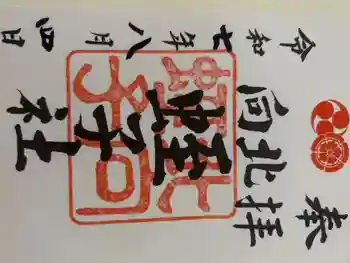 奉拝
北向
蛭子社
令和七年八月四日